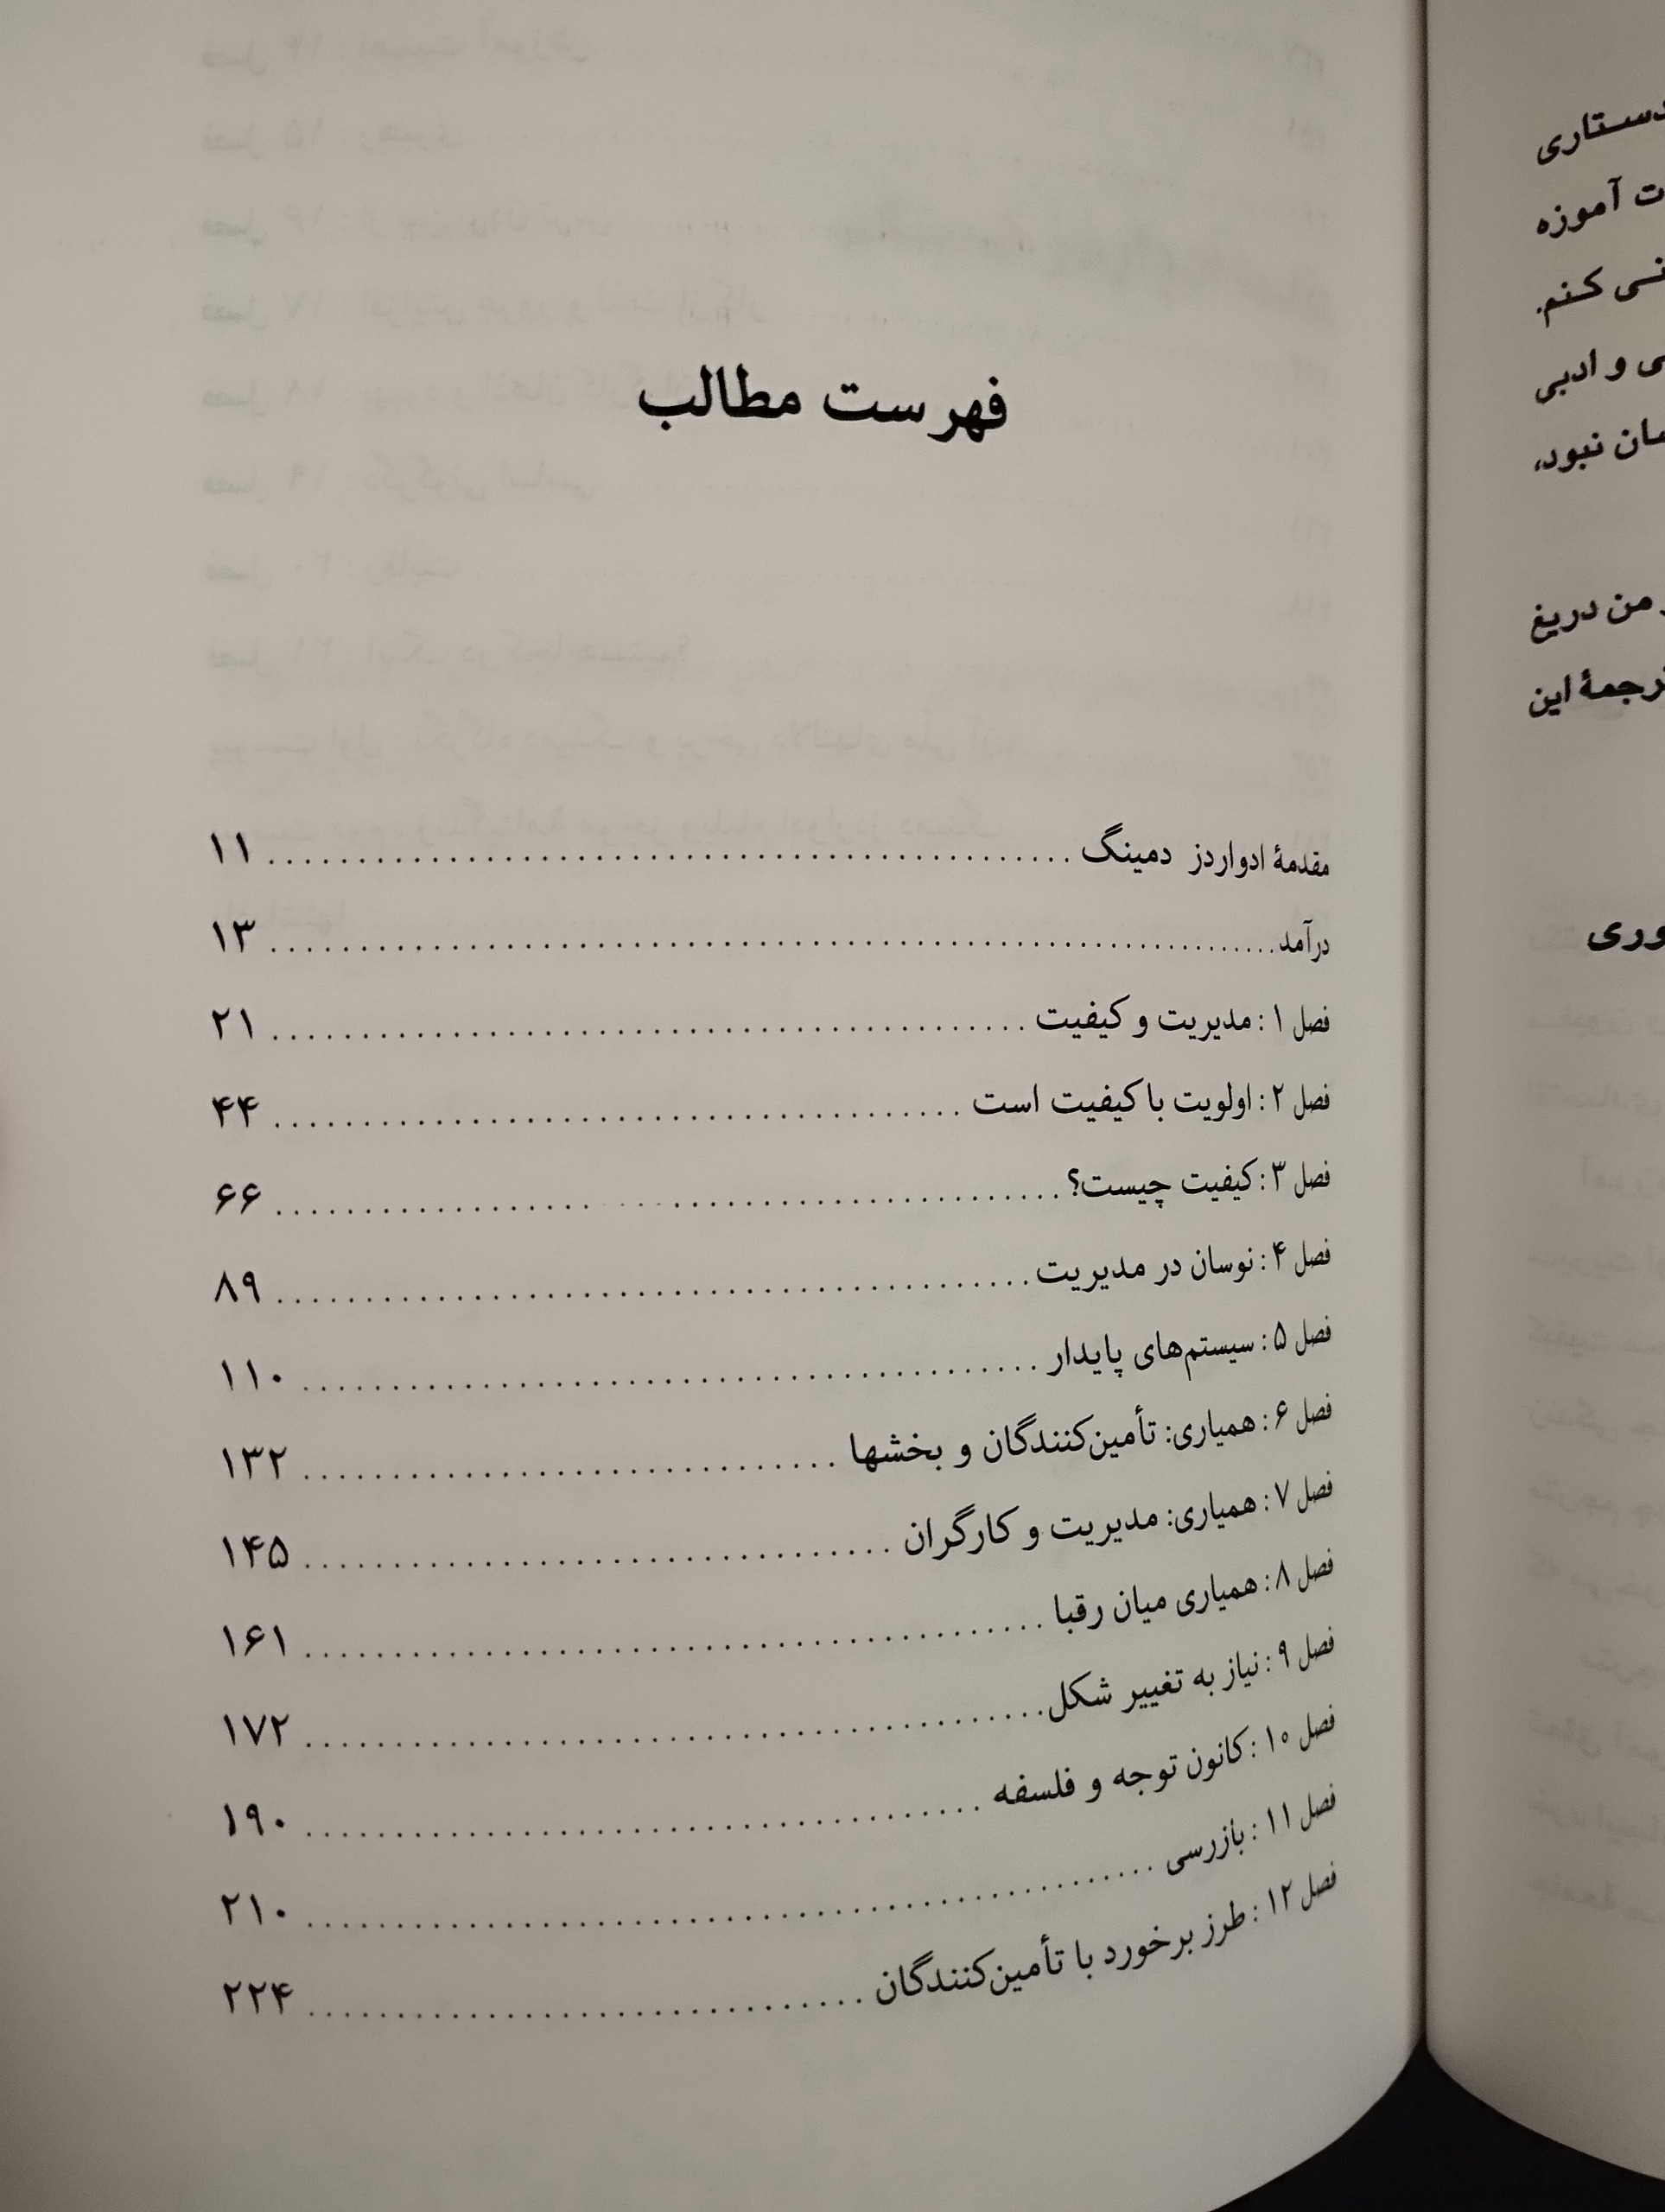 فهرست مطالب
مقدمهٔ ادواردز دمینگ ........................................ ۱۱
درآمد ........................................ ۱۳
فصل ۱: مدیریت و کیفیت ........................................ ۲۱
فصل ۲: اولویت با کیفیت است ........................................ ۴۴
فصل ۳: کیفیت چیست؟ ........................................ ۶۶
فصل ۴: نوسان در مدیریت ........................................ ۸۹
فصل ۵: سیستم‌های پایدار ........................................ ۱۱۰
فصل ۶: همیاری: تأمین‌کنندگان و بخشها ........................................ ۱۳۲
فصل ۷: همیاری: مدیریت و کارگران ........................................ ۱۴۵
فصل ۸: همیاری میان رقبا ........................................ ۱۶۱
فصل ۹: نیاز به تغییر شکل ........................................ ۱۷۲
فصل ۱۰: کانون توجه و فلسفه ........................................ ۱۹۰
فصل ۱۱: بازرسی ........................................ ۲۱۰
فصل ۱۲: طرز برخورد با تأمین‌کنندگان ........................................ ۲۲۴
آموزه
کنم.
و ادبی
نبود،
من دریغ
این